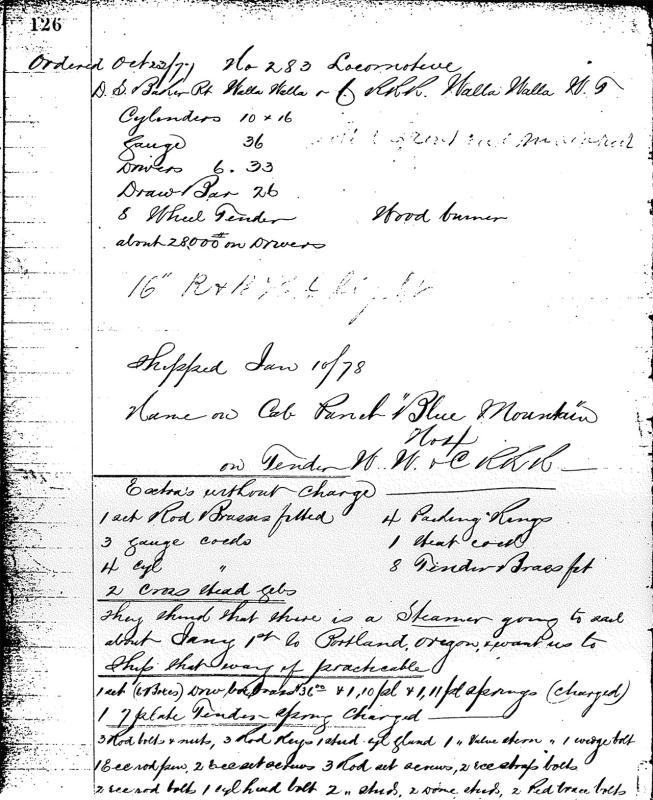 126
Ordered Oct 22/77 No 283 Locomotive
D. S. Baker Pt Walla Walla & C RRR. Walla Walla W. T
Cylinders 10 x 16
Gauge 36
Drivers 6. 33
Draw Bar 26
8 Wheel Tender Wood burner
about 28000# on Drivers
16"
Shipped Jan 10/78
Name on Cab Panel "Blue Mountain"
No 4
on Tender W. W. & C RRR
Extras without charge
1 set Rod Brasses fitted 4 Packing Rings
3 gauge cocks 1 Heat cock
4 Cyl " 8 Tender Brass fit
2 Cross Head gibs
They think that there is a Steamer going to sail
about Jany 1st to Portland, Oregon, & want us to
Ship that way if practicable
1 set Driv box brass $36.00 & 1, 10 pl & 1, 11 pl springs (charged)
1 7 plate Tender spring charged
3 Rod bolts & nuts, 3 Rod Keys 1 stud cyl gland 1 " Valve stem " 1 wedge bolt
1 Eccrod jaw, 2 ecc set screws 3 Rod set screws, 2 ecc strap bolts
2 ecc rod bolts 1 cyl head bolt 2 " studs, 2 dome studs, 2 Ped brace bolts